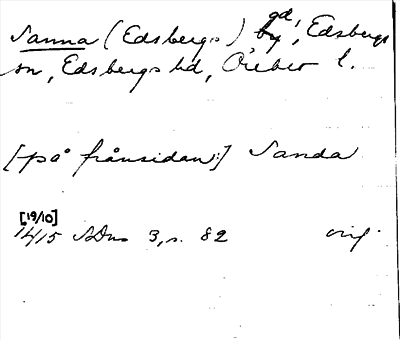 Sanna (Edsbergs) gd, Edsbergs
sn, Edsbergs hd, Örebro l.
[på frånsidan:] Sanda
[19/10]
14/15 SDns 3, s. 82 orig.